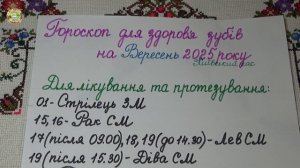 Гороскоп для здоровя зубів
на Вересень 2025 року
Для лікування та протезування:
01- Стрілець ЗМ
15,16- Рак СМ
17(після 09.00),18,19(до 14.30)-Лев СМ
19(після 15.30)- Діва СМ